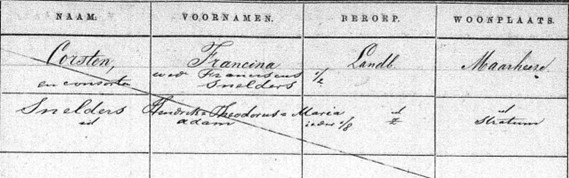 NAAM. VOORNAMEN. BEROEP. WOONPLAATS.
Corsten, Francina Landb. Maarheeze
en consorten wed Franciscus 1/2
Snelders
Snelders Hendrika Theodorus & Maria id id
id adam ieder 1/8 Stratum